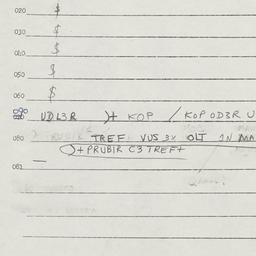 020 $
030 $
040 $
050 $
060 $
UDL3R )+ KOP / KOP OD3R U
080 TREF VUS 3X OLT IN MA
+ PRUBIR C3 TREF+
081